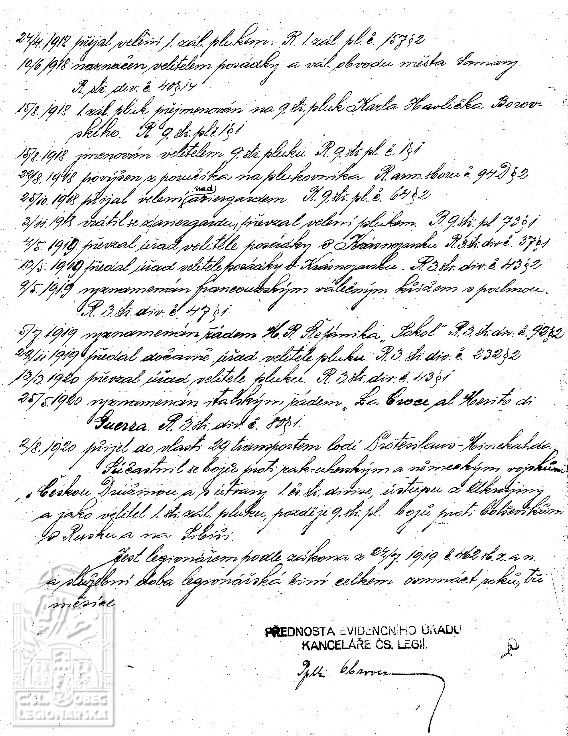 27/4. 1918 přijal velení 1. zál. plukem. R. 1. zál. pl. č. 157§2
19/6 1918 naznačen velitelem posádky a vál. obvodu města Samary
R. stř. div. č. 40§4
15/8. 1918 1. zál. pluk přejmenován na 9. stř. pluk Karla Havlíčka Borov-
ského. R. 9. stř. pl. č. 1§1
15/8. 1918 jmenován velitelem 9. stř. pluku R. 9. stř. pl. č. 1§1
28/8. 1918 povýšen z poručíka na plukovníka R. arm. sboru č. 94D§2
25/10. 1918 přijal velení nad ariergardem R. 9. stř. pl. č. 64§2
1919 převzal úřad velitele posádky v Krasnojarsku R. 3. stř. div. č. 37§1
1919 předal úřad velitele posádky v Krasnojarsku. R. 3. stř. div. č. 43§2
9/5. 1919 vyznamenán francouzským válečným křížem s palmou.
R. 3. stř. div. č. 47§1
5/7 1919 vyznamenán řádem M. R. Štefánika „Sokol" R. 3. stř. div. č. 92§2
1919 předal dočasně úřad velitele pluku. R. 3. stř. div. č. 232§2
13/3 1920 převzal úřad velitele pluku. R. 3. stř. div. č. 43§1
25/5. 1920 vyznamenán italským řádem „La Croce al Merito di
Guerra R. 3. stř. div. č. 83§1.
2/8. 1920 přijel do vlasti 29 transportem lodi
Súčastnil se bojů proti rakouským a německým vojskům
s Českou Družinou, a s útvary 1. čs. stř. divise, ústupu z Ukrajiny
a jako velitel 1. stř. zál. pluku, později 9. stř. pl. bojů proti bolševikům
v Rusku a na Sibiři.
Jest legionářem podle zákona z 24/7 1919 č. 462 sb. z. a n.
a služební doba legionářská činí celkem osmnáct roků, tři
měsíce
PŘEDNOSTA EVIDENČNÍHO ÚŘADU
KANCELÁŘE ČS. LEGIÍ.
ČSL. OBEC
LEGIONÁŘSKÁ